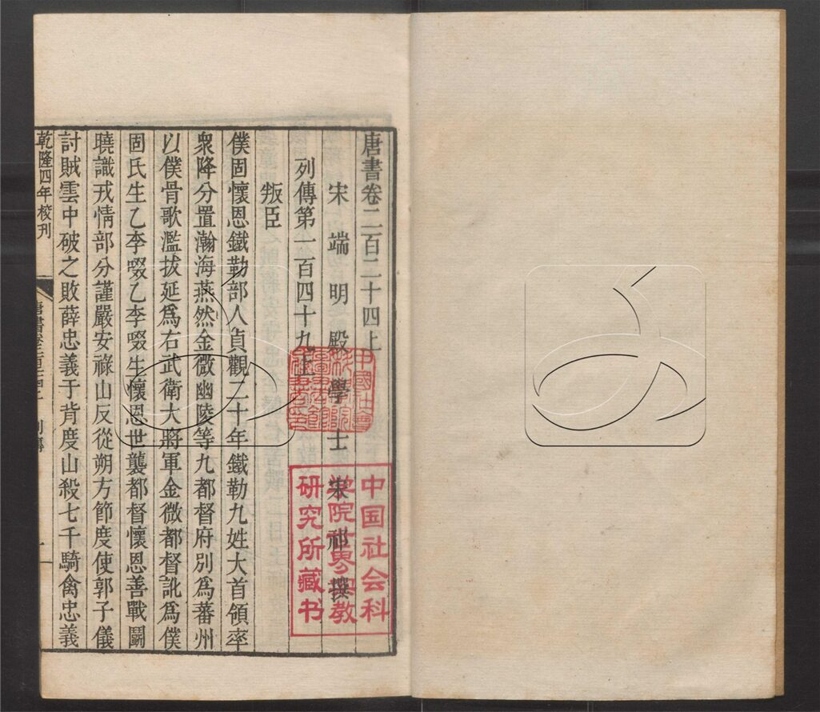 唐書卷二百二十四上
宋端明殿學士宋祁撰
列傳第一百四十九上
叛臣
僕固懷恩鐵勒部人貞觀二十年鐵勒九姓大首領率
衆降分置瀚海燕然金微幽陵等九都督府別爲蕃州
以僕骨歌濫拔延爲右武衛大將軍金微都督訛爲僕
固氏生乙李啜乙李啜生懷恩世襲都督懷恩善戰鬬
曉識戎情部分謹嚴安祿山反從朔方節度使郭子儀
討賊雲中破之敗薛忠義于背度山殺七千騎禽忠義
乾隆四年校刊
唐書卷二百二十四上 列傳 一
中国社会科
学院世界宗教
研究所藏书
中國社會
科學院
圖書館
藏書